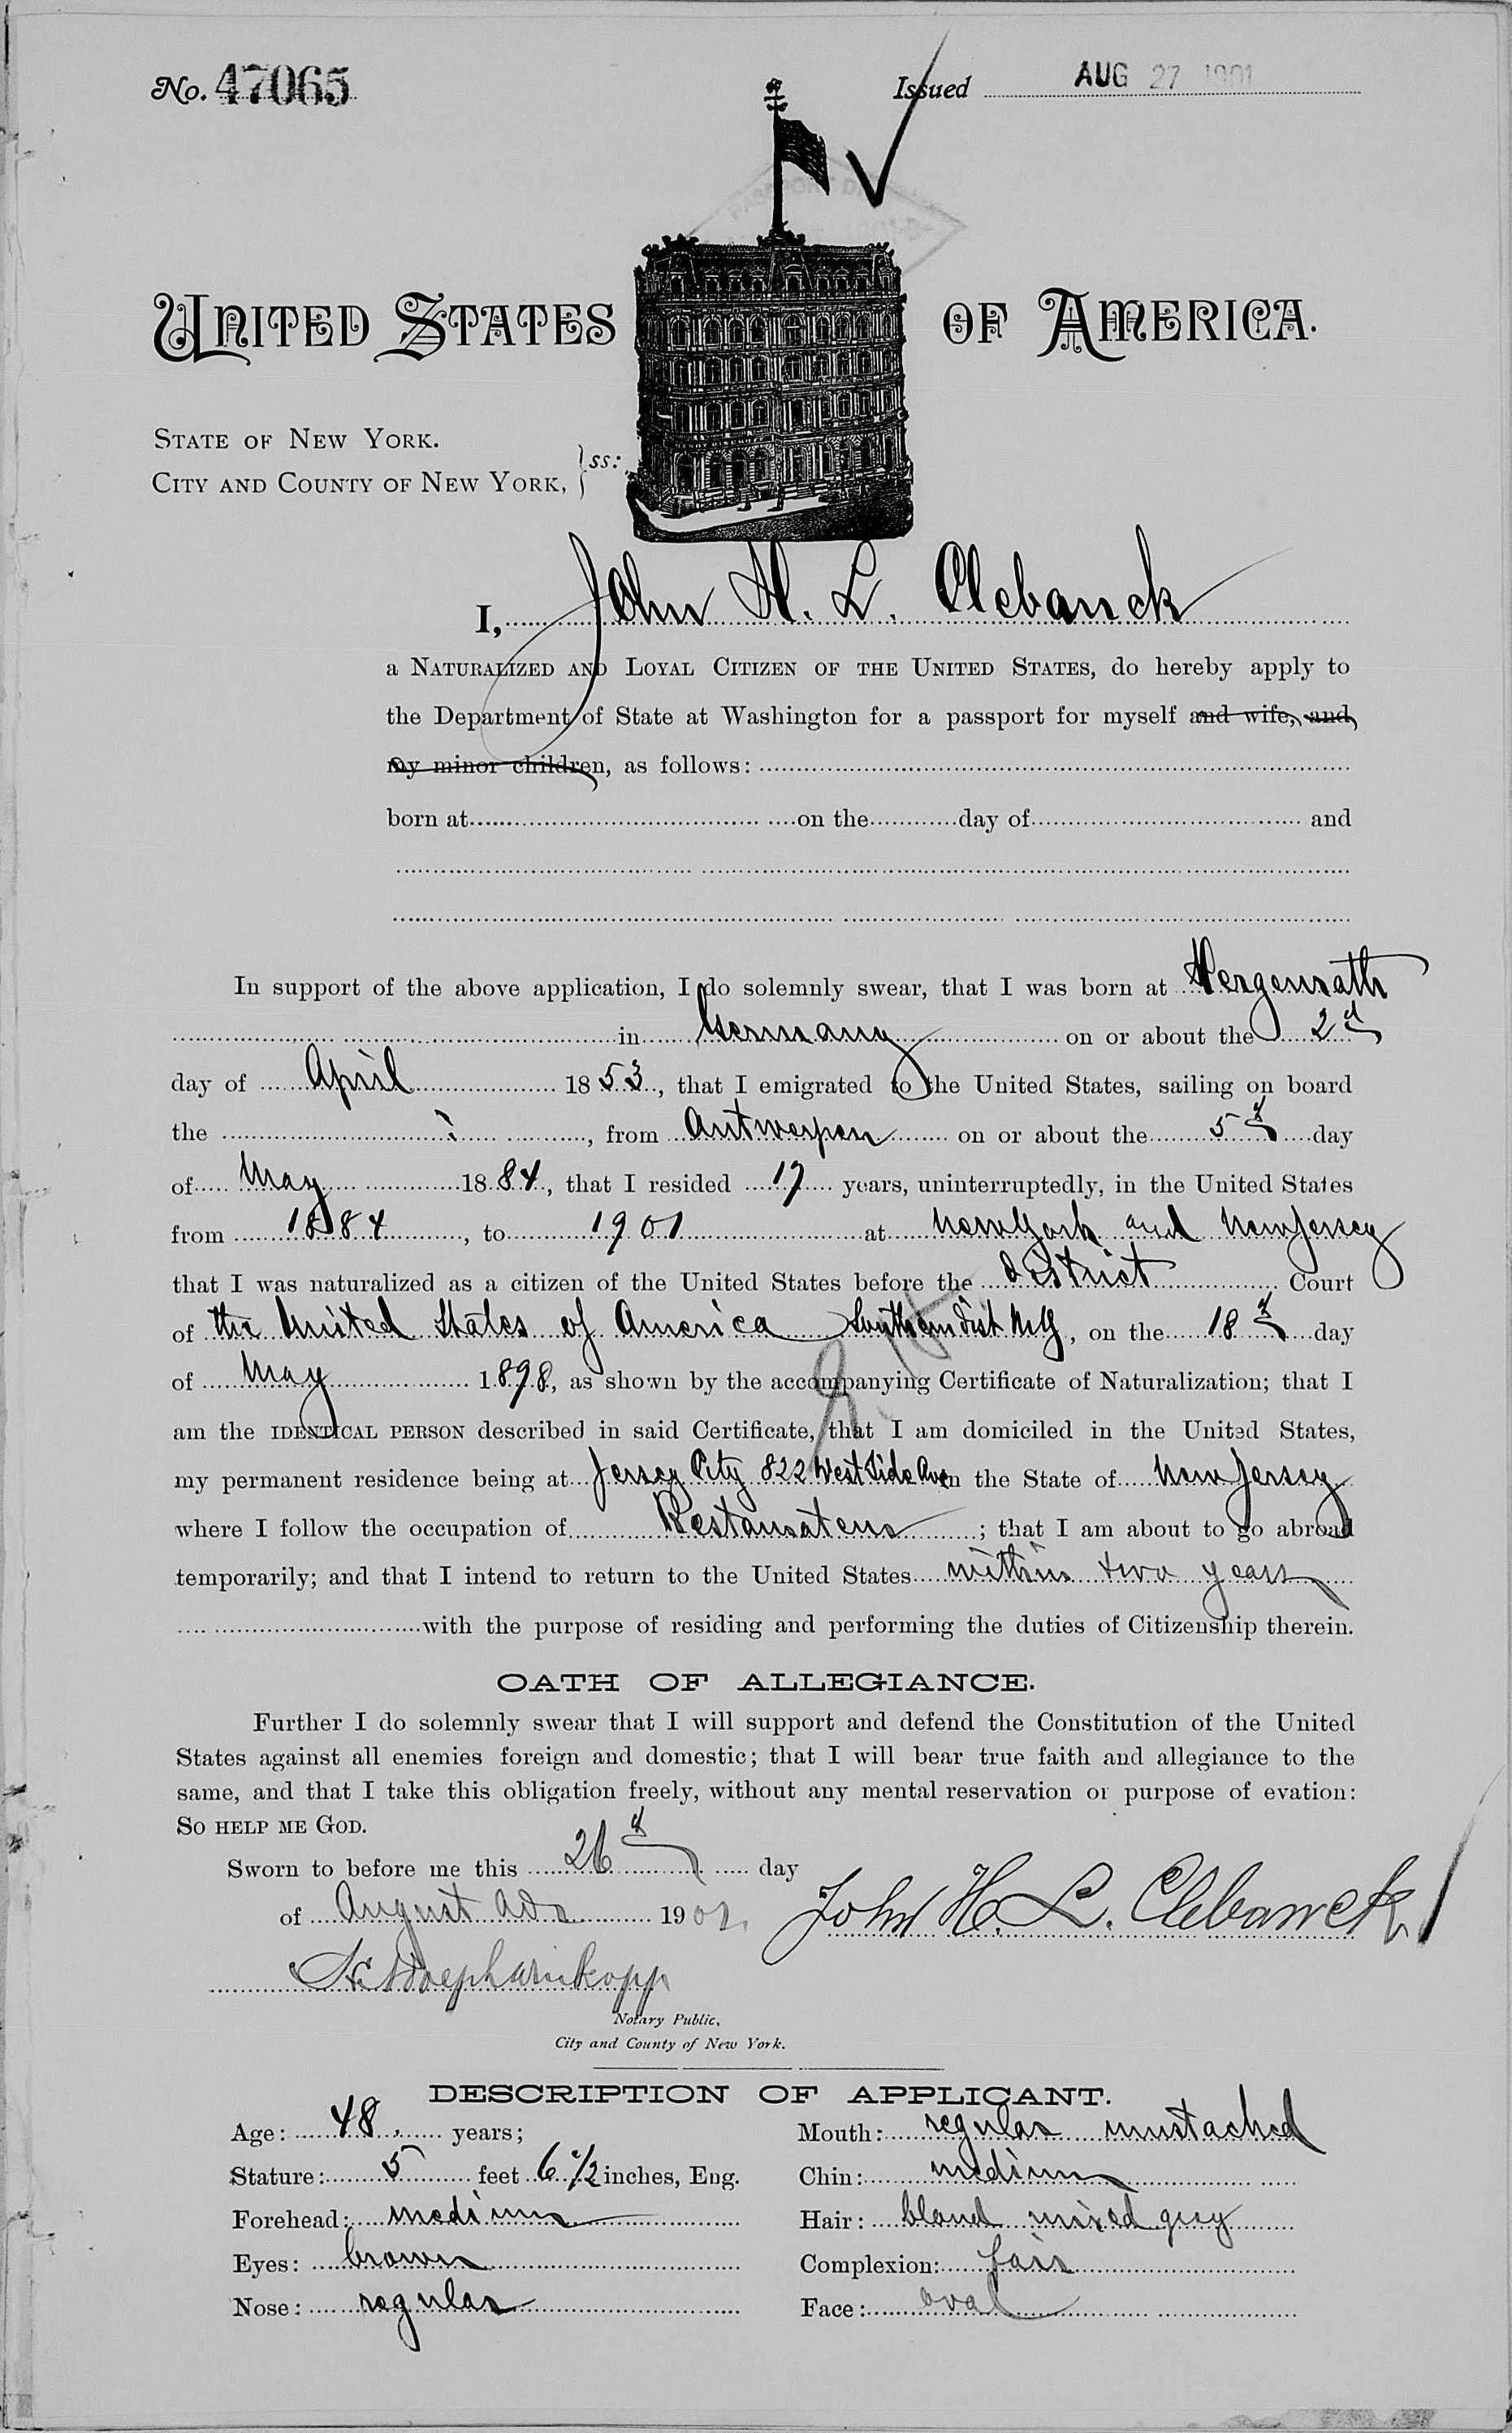 No. 47065 Issued AUG 27 1901
UNITED STATES OF AMERICA.
STATE OF NEW YORK.
CITY AND COUNTY OF NEW YORK, } ss:
I, John H. L. Clebanck
a NATURALIZED AND LOYAL CITIZEN OF THE UNITED STATES, do hereby apply to
the Department of State at Washington for a passport for myself and wife, and
my minor children, as follows:
born at on the day of and
In support of the above application, I do solemnly swear, that I was born at Hergenrath
in Germany on or about the 2d
day of April 1853, that I emigrated to the United States, sailing on board
the , from Antwerpen on or about the 5th day
of May 1884, that I resided 17 years, uninterruptedly, in the United States
from 1884, to 1901 at New York and New Jersey
that I was naturalized as a citizen of the United States before the District Court
of the United States of America Southern Dist NY, on the 18th day
of May 1898, as shown by the accompanying Certificate of Naturalization; that I
am the IDENTICAL PERSON described in said Certificate, that I am domiciled in the United States,
my permanent residence being at Jersey City 822 West Side Ave in the State of New Jersey
where I follow the occupation of Restaurateur; that I am about to go abroad
temporarily; and that I intend to return to the United States within two years
with the purpose of residing and performing the duties of Citizenship therein.
OATH OF ALLEGIANCE.
Further I do solemnly swear that I will support and defend the Constitution of the United
States against all enemies foreign and domestic; that I will bear true faith and allegiance to the
same, and that I take this obligation freely, without any mental reservation or purpose of evation:
SO HELP ME GOD.
Sworn to before me this 26th day
of August AD 1901 John H. L. Clebanck
Notary Public,
City and County of New York.
DESCRIPTION OF APPLICANT.
Age: 48 years; Mouth: regular mustached
Stature: 5 feet 6 1/2 inches, Eng. Chin: medium
Forehead: medium Hair: blond mixed grey
Eyes: brown Complexion: fair
Nose: regular Face: oval